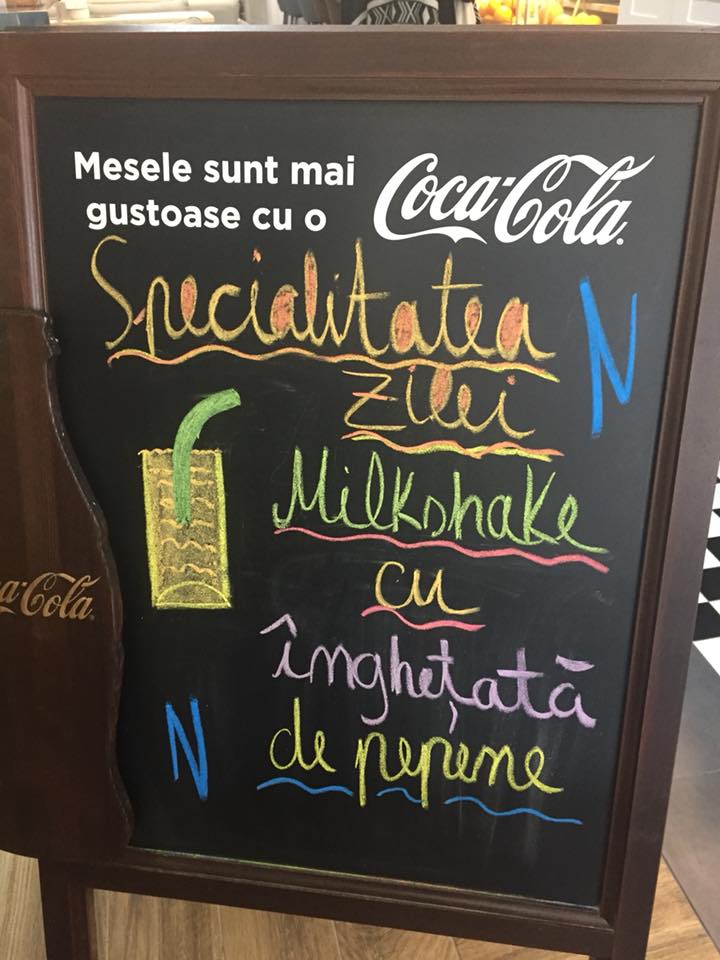 Mesele sunt mai
gustoase cu o
Coca-Cola
Specialitatea
N
zilei
Milkshake
cu
înghețată
N
de pepene
a-Cola